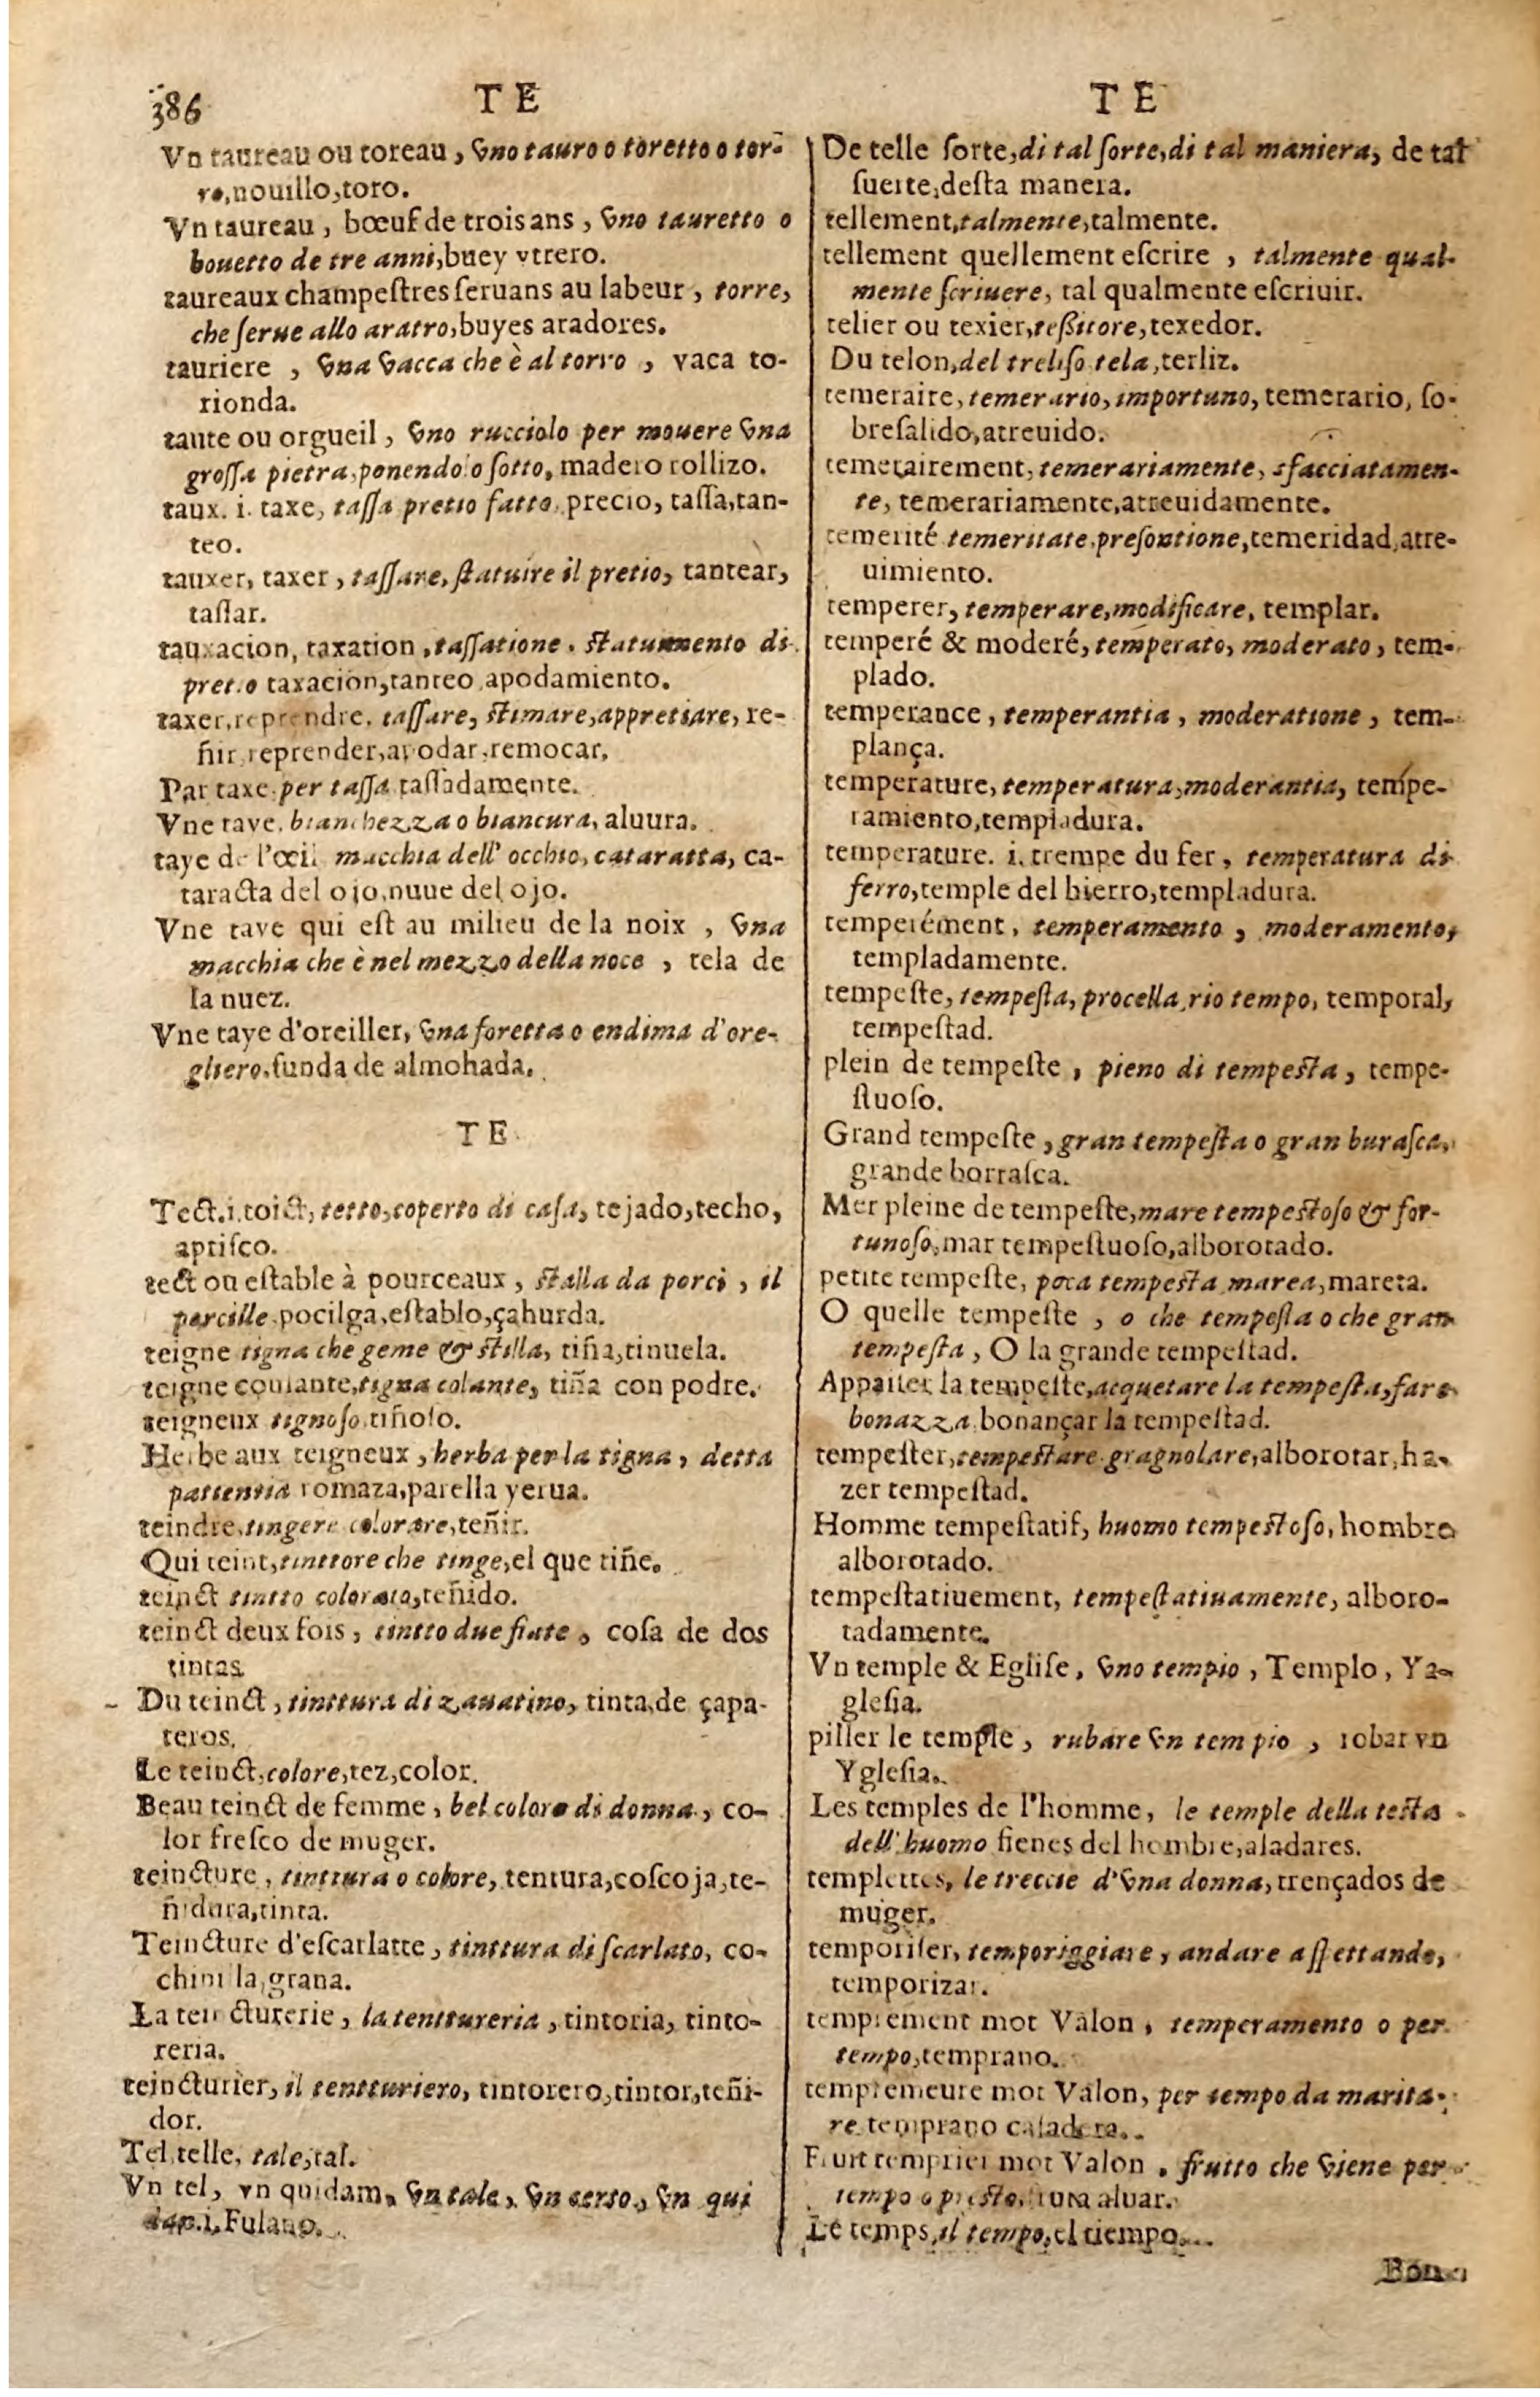 386 TE TE
Vn taureau ou toreau, vno tauro o toretto o tor-
ro, nouillo, toro.
Vn taureau, bœuf de trois ans, vno tauretto o
bouetto de tre anni, buey vtrero.
taureaux champeſtres ſeruans au labeur, torre,
che ſerue allo aratro, buyes aradores.
tauriere, vna vacca che è al torro, vaca to-
rionda.
taute ou orgueil, vno rucciolo per mouere vna
groſſa pietra, ponendo o ſotto, madero rollizo.
taux. i. taxe, taſſa pretio fatto, precio, taſſa, tan-
teo.
tauxer, taxer, taſſare, ſtatuire il pretio, tantear,
taſſar.
tauxacion, taxation, taſſatione, ſtatuimento di
pretio taxacion, tanteo, apodamiento.
taxer, reprendre, taſſare, ſtimare, appretiare, re-
ñir, reprender, apodar, remocar.
Par taxe, per taſſa, taſſadamente.
Vne taye, bianchezza o biancura, aluura.
taye de l'œil, macchia dell' occhio, cataratta, ca-
taracta del ojo, nuue del ojo.
Vne taye qui eſt au milieu de la noix, vna
macchia che è nel mezzo della noce, tela de
la nuez.
Vne taye d'oreiller, vna foretta o endima d'ore-
gliero, funda de almohada.
TE
Tect. i. toict, tetto, coperto di caſa, tejado, techo,
apriſco.
tect ou eſtable à pourceaux, ſtalla da porci, il
porcille, pocilga, eſtablo, çahurda.
teigne tigna che geme & ſtilla, tiña, tinuela.
teigne coulante, tigna colante, tiña con podre.
teigneux tignoſo, tiñoſo.
Herbe aux teigneux, herba per la tigna, detta
patientia romaza, parella yerua.
teindre, tingere colorare, teñir.
Qui teint, tinttore che tinge, el que tiñe.
teinct tintto colorato, teñido.
teinct deux fois, tintto due fiate, coſa de dos
tintas.
Du teinct, tinttura di zauatino, tinta, de çapa-
teros.
Le teinct, colore, tez, color.
Beau teinct de femme, bel colore di donna, co-
lor freſco de muger.
teincture, tinttura o colore, tentura, coſcoja, te-
ñidura, tinta.
Teincture d'eſcarlatte, tinttura di ſcarlato, co-
chinilla, grana.
La teincturerie, la tenttureria, tintoria, tinto-
reria.
teincturier, il tentturiero, tintorero, tintor, teñi-
dor.
Tel, telle, tale, tal.
Vn tel, vn quidam, vn tale, vn certo, vn qui
dap. i. Fulano.
De telle ſorte, di tal ſorte, di tal maniera, de tal
ſuerte, deſta manera.
tellement, talmente, talmente.
tellement quellement eſcrire, talmente qual-
mente ſcriuere, tal qualmente eſcriuir.
telier ou texier, teßitore, texedor.
Du telon, del treliſo tela, terliz.
temeraire, temerario, importuno, temerario, ſo-
breſalido, atreuido.
temerairement, temerariamente, sfacciatamen-
te, temerariamente, atreuidamente.
temerité temeritate, preſontione, temeridad, atre-
uimiento.
temperer, temperare, modificare, templar.
temperé & moderé, temperato, moderato, tem-
plado.
temperance, temperantia, moderatione, tem-
plança.
temperature, temperatura, moderantia, tempe-
ramiento, templadura.
temperature. i. trempe du fer, temperatura di
ferro, temple del hierro, templadura.
temperément, temperamento, moderamento,
templadamente.
tempeſte, tempeſta, procella, rio tempo, temporal,
tempeſtad.
plein de tempeſte, pieno di tempeſta, tempe-
ſtuoſo.
Grand tempeſte, gran tempeſta o gran buraſca,
grande borraſca.
Mer pleine de tempeſte, mare tempeſtoſo & for-
tunoſo, mar tempeſtuoſo, alborotado.
petite tempeſte, poca tempeſta marea, mareta.
O quelle tempeſte, o che tempeſta o che gran
tempeſta, O la grande tempeſtad.
Appaiſer la tempeſte, acquetare la tempeſta, fare
bonazza, bonançar la tempeſtad.
tempeſter, tempeſtare gragnolare, alborotar, ha-
zer tempeſtad.
Homme tempeſtatif, huomo tempeſtoſo, hombre
alborotado.
tempeſtatiuement, tempeſtatiuamente, alboro-
tadamente.
Vn temple & Egliſe, vno tempio, Templo, Ya-
gleſia.
piller le temple, rubare vn tempio, robar vn
Ygleſia.
Les temples de l'homme, le temple della teſta
dell' huomo ſienes del hombre, aladares.
templettes, le treccie d'vna donna, trençados de
muger.
temporiſer, temporiggiare, andare aſpettando,
temporizar.
temprement mot Valon, temperamento o per
tempo, temprano.
tempremeure mot Valon, per tempo da marita-
re temprano caſadera.
Fruit temprier mot Valon, frutto che viene per
tempo o preſto, fruta aluar.
Le temps, il tempo, el tiempo.
Bon